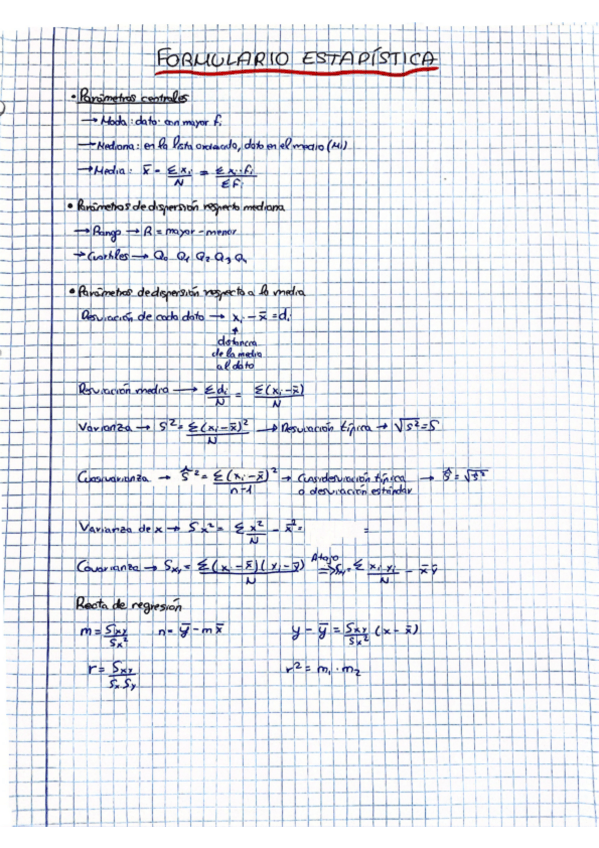 FORMULARIO ESTADÍSTICA
• Parámetros centrales
→ Moda: dato con mayor fi
→ Mediana: en la lista ordenada, dato en el medio (Mi)
→ Media: x̄ = Σxi/N = Σxi·fi/Σfi
• Parámetros de dispersión respecto mediana
→ Rango → R = mayor - menor
→ Cuartiles → Q₀ Q₁ Q₂ Q₃ Q₄
• Parámetros de dispersión respecto a la media
Desviación de cada dato → xi - x̄ = di
↓
distancia
de la media
al dato
Desviación media → Σdi/N = Σ(xi-x̄)/N
Varianza → S² = Σ(xi-x̄)²/N → Desviación típica → √S² = S
Cuasivarianza → Ŝ² = Σ(xi-x̄)²/n-1 → Cuasidesviación típica → Ŝ = √Ŝ²
o desviación estándar
Varianza de x → Sx² = Σx²/N - x̄² = =
Covarianza → Sxy = Σ(xi-x̄)(yi-ȳ)/N Atajo ⇒ Sxy = Σxi yi/N - x̄ȳ
Recta de regresión
m = Sxy/Sx² n = ȳ - mx̄ y - ȳ = Sxy/Sx² (x - x̄)
r = Sxy/Sx Sy r² = m₁ · m₂